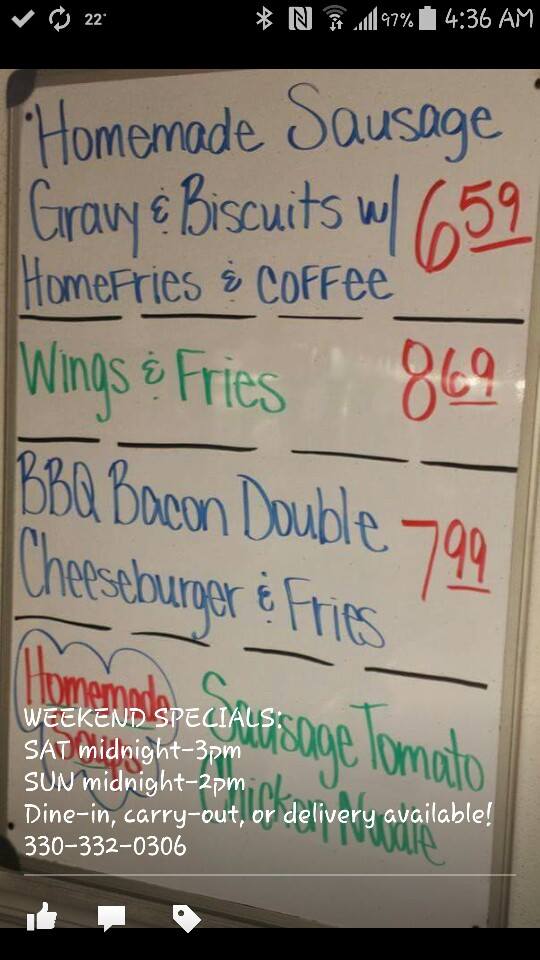 22°
97%
4:36 AM
Homemade Sausage
Gravy & Biscuits w/
HomeFries & Coffee
6.59
Wings & Fries
8.69
BBQ Bacon Double
Cheeseburger & Fries
7.99
Homemade
Soups
Sausage Tomato
Chicken Noodle
WEEKEND SPECIALS:
SAT midnight-3pm
SUN midnight-2pm
Dine-in, carry-out, or delivery available!
330-332-0306